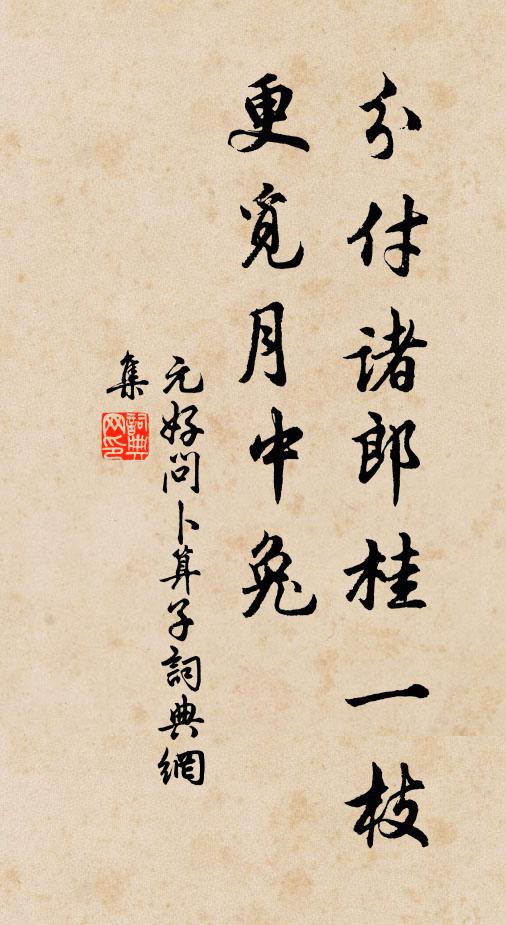 分付诸郎桂一枝
更觅月中兔
元好问卜算子詞典網
集
詞典
网印